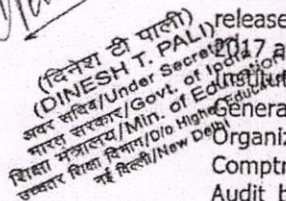 (दिनेश टी पाली)
(DINESH T. PALI)
अवर सचिव/Under Secretary
भारत सरकार/Govt. of India
शिक्षा मंत्रालय/Min. of Education
उच्चतर शिक्षा विभाग/D/o Higher Education
नई दिल्ली/New Delhi
release
2017 a
Institut
General
Organiz
Comptr
Audit b